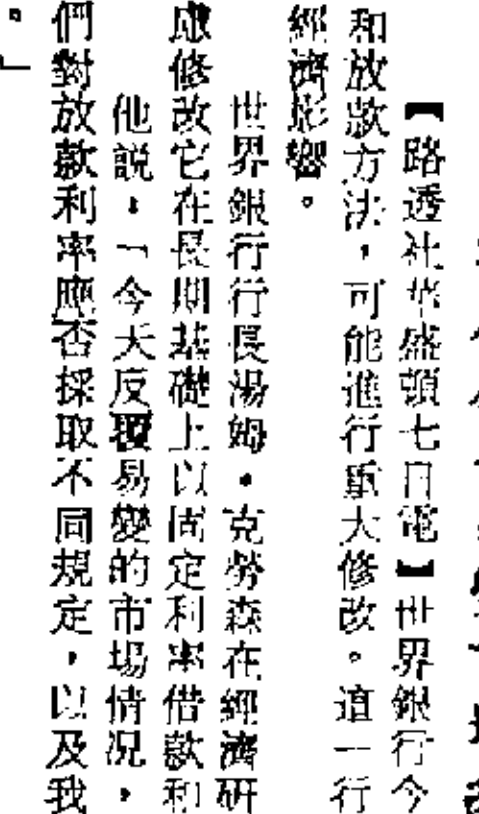 【路透社華盛頓七日電】世界銀行今
和放款方法,可能進行重大修改。這一行
經濟影響。
世界銀行行長湯姆·克勞森在經濟研
應修改它在長期基礎上以固定利率借款和
他說,「今天反覆易變的市場情況,
們對放款利率應否採取不同規定,以及我
。」